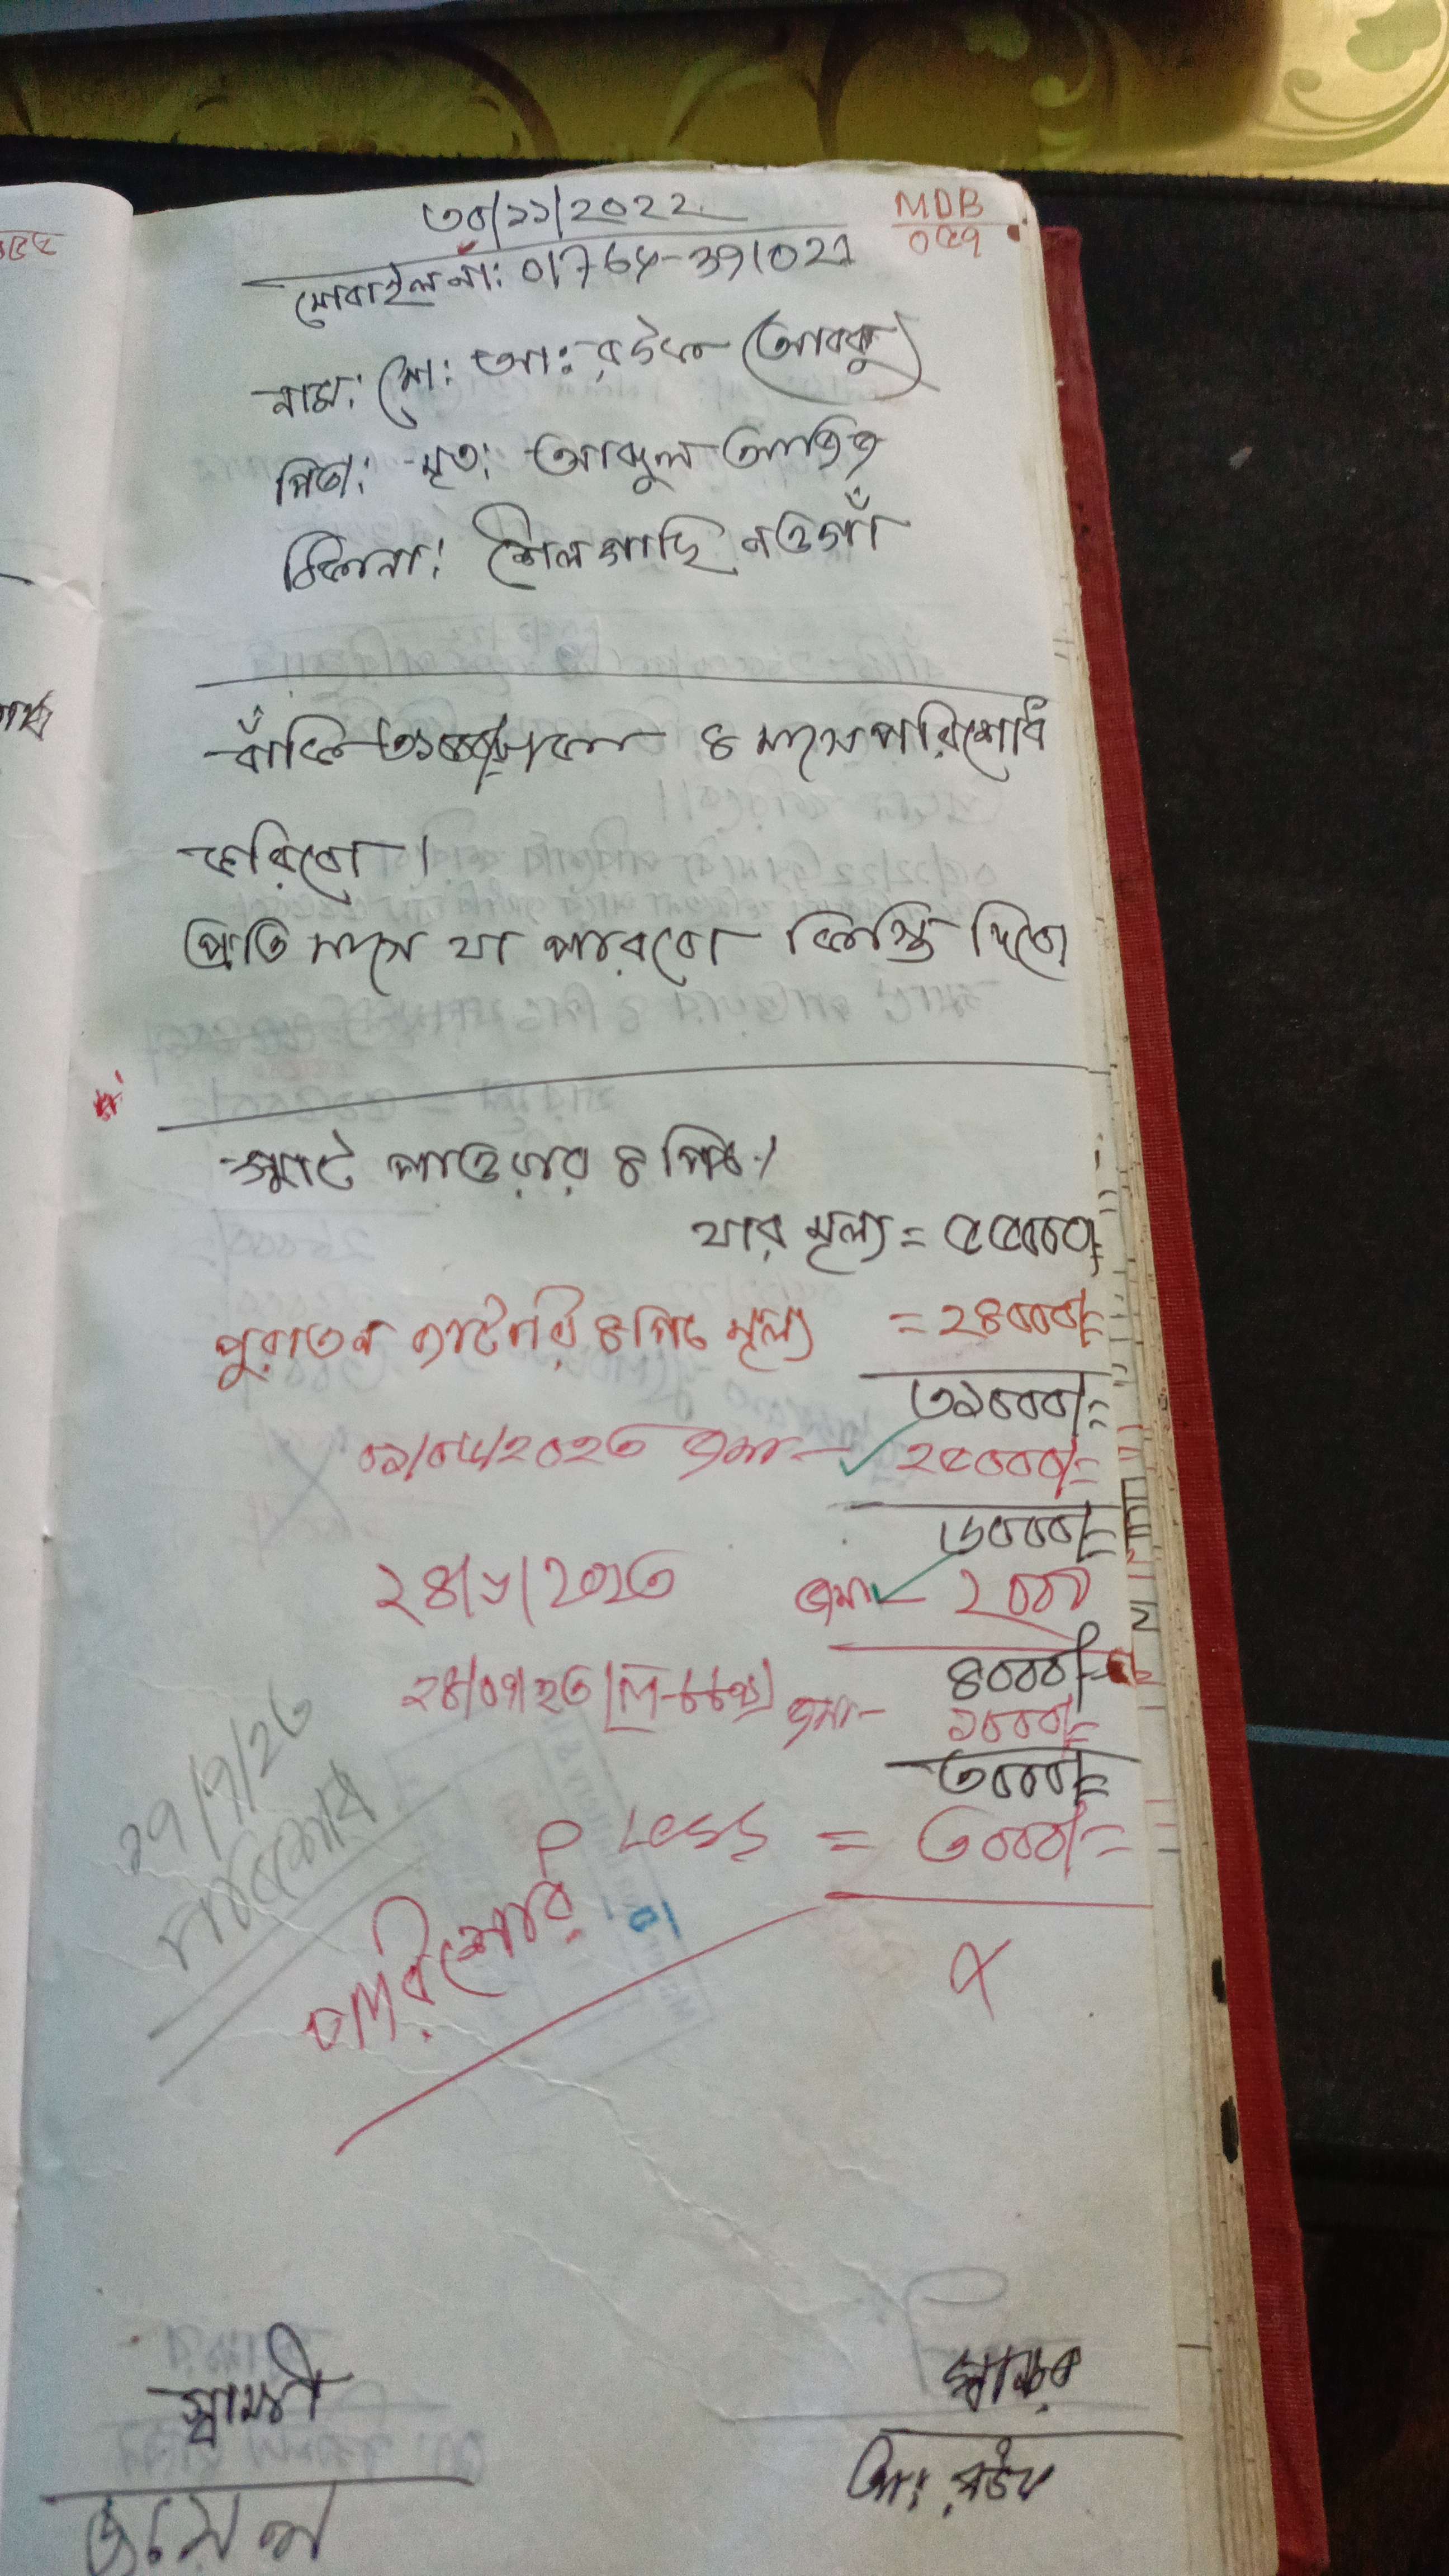 ৩০/১১/2022
MDB
০৫৭
মোবাইল নাং: 01764-391021
নাম: মো: আ: রউফ (আবকু)
পিতা: মৃত: আব্দুল আজিজ
ঠিকানা: শৈলগাছি নওগাঁ
বাঁকি ৩১০০০/= টাকা ৪ মাসে পরিশোধ
করিবো।
প্রতি মাসে যা পারবো কিস্তি দিবো
স্মার্ট পাওয়ার ৪ পিচ।
যার মূল্য = ৫৫০০০/=
পুরাতন ব্যাটারি ৪ পিচ মূল্য = ২৪০০০/=
৩১০০০/=
০১/০৬/২০২৩ জমা - ২৫০০০/=
৬০০০/=
২৪/৬/২০২৩ জমা - ২০০০
৪০০০/=
২৪/০৭/২৩ জমা - ১০০০/=
৩০০০/=
Less = ৩০০০/=
২৭/৭/২৩
পরিশোধ
পরিশোধ
স্বাক্ষী
স্বাক্ষর
আ: রউফ